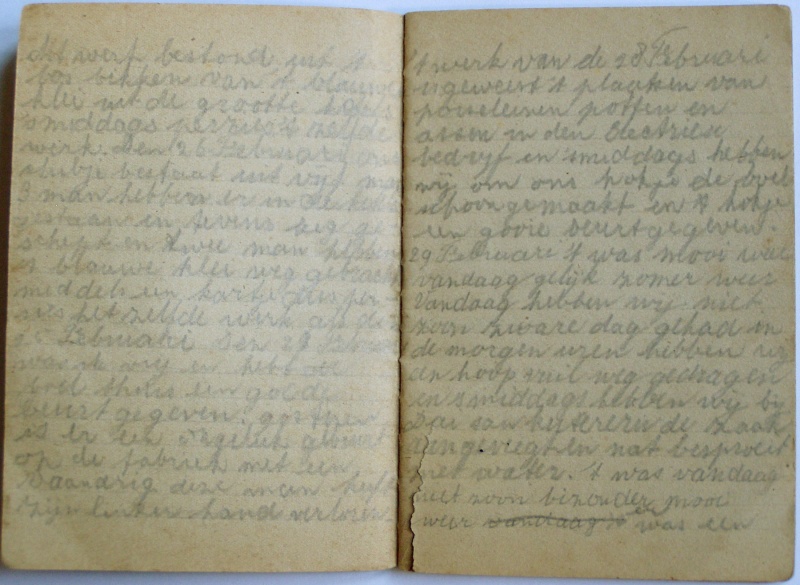 het werk bestond uit 't
los bikken van 't blauwe
klei uit de grootte
smiddags perzies 't zelfde
werk. den 26 Februari ons
clubje bestaat uit vijf man
3 man hebben er in de
gestaan en tevens
schept en twee man hebben
't blauwe klei weg gebracht
middels een karitje
het zelfde werk als de
Februari den 28
was ik vrij en heb de
boel thuis een goede
beurt gegeven. gisteren
is er een ongeluk gebeurt
op de fabriek met een
deze man heeft
zijn linker hand verloren
't werk van de 28 Februari
is geweest 't plaatsen van
porseleinen potten en
assen in den Electries
bedryf en smiddags hebben
wij om ons hokje de boel
schoongemaakt en 't hokje
een gooie beurt gegeven.
29 Februari 't was mooi weer
vandaag gelijk zomer weer
Vandaag hebben wij niet
zoon zware dag gehad in
de morgen uren hebben wij
en hoop vuil weg gedragen
en smiddags hebben wij bij
de zaak
aangeveegt en nat besproeit
met water. 't was vandaag
niet zoon bizonder mooi
weer vandaag 't was een